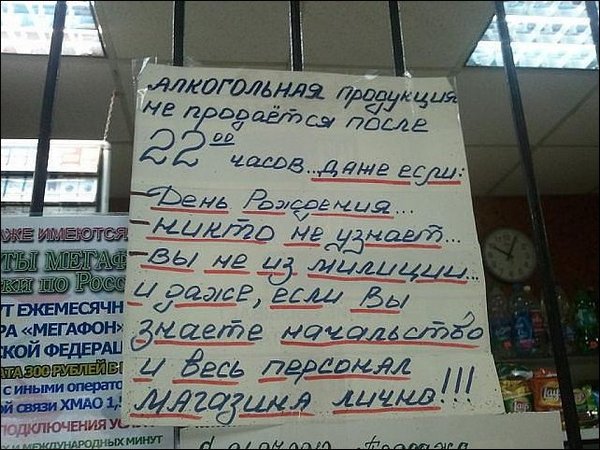 АЛКОГОЛЬНАЯ продукция
не продаётся после
22⁰⁰ часов...даже если:
- День Рождения...
- никто не узнает...
- вы не из милиции...
и даже, если Вы
знаете начальство
и весь персонал
магазина лично!!!
ЖЕ ИМЕЮТСЯ
ТЫ МЕГАФ
ки по Росс
УТ ЕЖЕМЕСЯЧН
РА «МЕГАФОН»
СКОЙ ФЕДЕРАЦ
АТА 300 РУБЛЕЙ В
с иными операто
ой связи ХМАО 1,5
ПОДКЛЮЧЕНИЯ УС
Х И МЕЖДУНАРОДНЫХ МИНУТ
Lay's